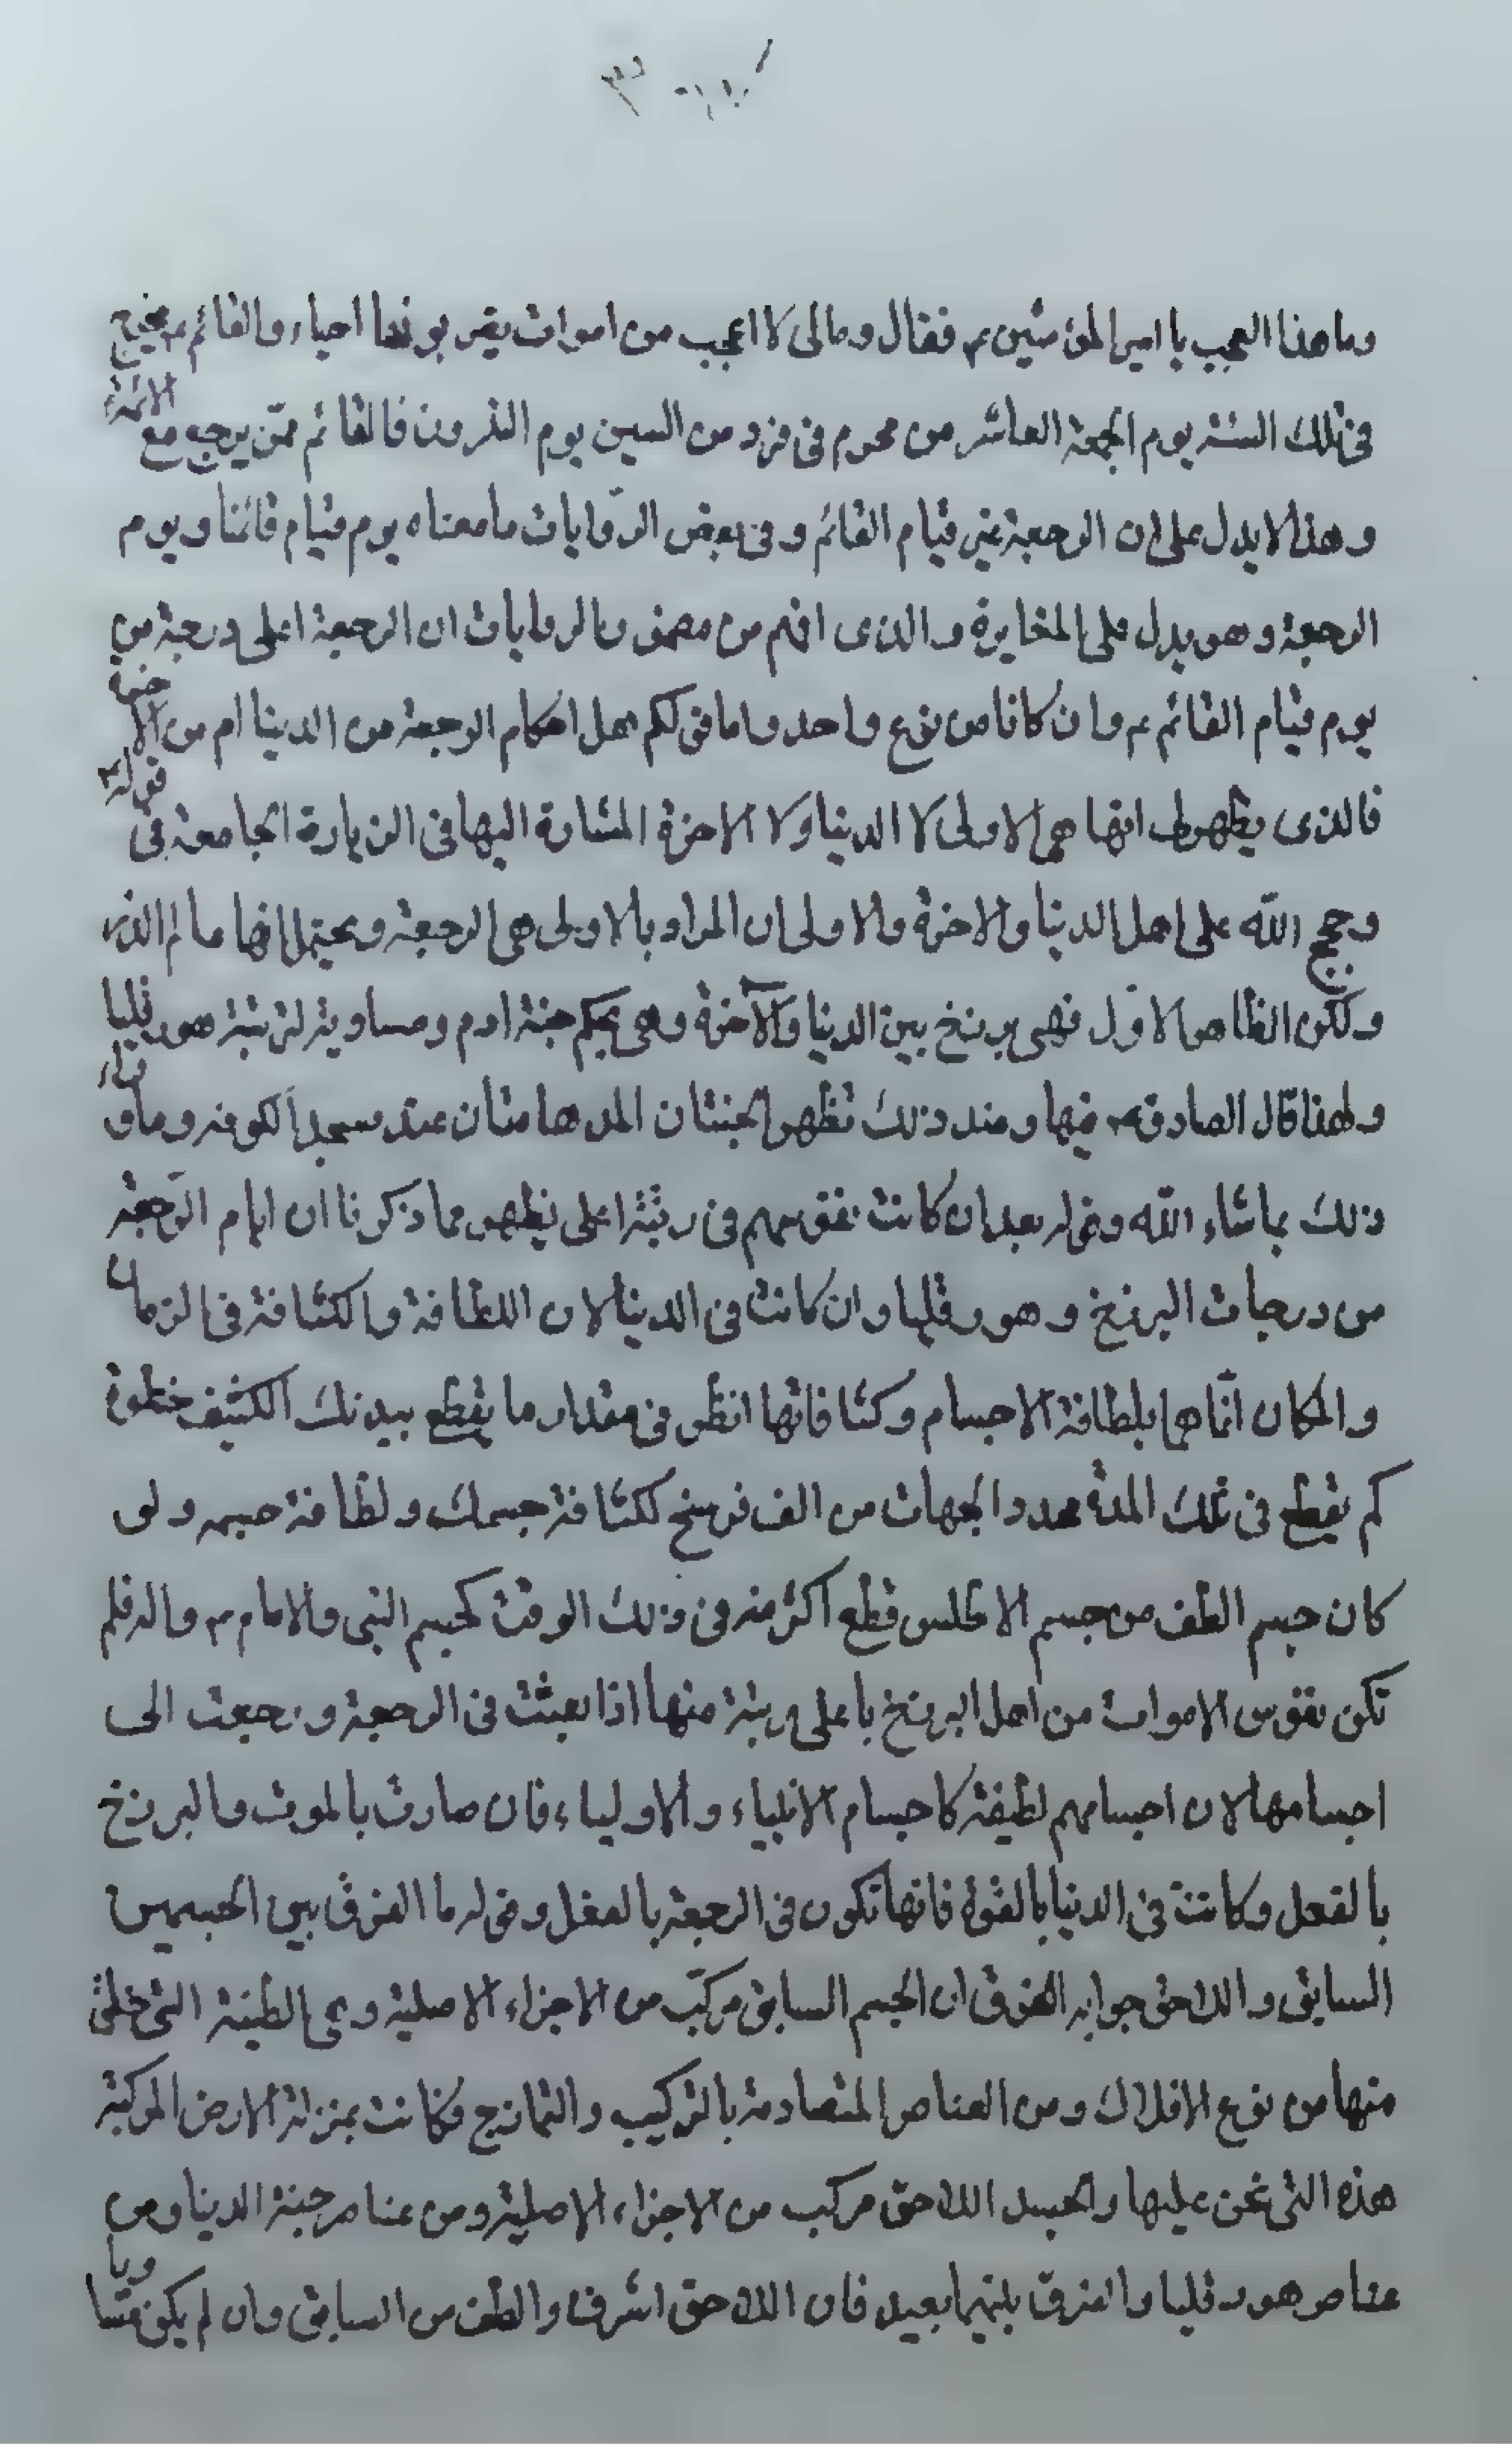 وما هذا العجب يا امير المؤمنين ع فقال ومالى لا اعجب من اموات يضربون هام احياء والقائم ع يخرج
فى تلك السنة يوم الجمعة العاشر من محرم فى فرد من السنين يوم النيروز فالقائم ممّن يرجع مع الائمة
وهذا لا يدل على ان الرجعة غير قيام القائم وفى بعض الرّوايات ما معناه يوم قيام قائمنا ويوم
الرجعة وهو يدل على المغايرة والذى افهم من مضمون الروايات ان الرجعة اعلى درجة من
يوم قيام القائم ع وان كانا من نوع واحد واما قولكم هل احكام الرجعة من الدنيا ام من الاخرة
فالذى يظهر لى انها هى الاولى لا الدنيا ولا الاخرة المشارة اليها فى الزيارة الجامعة فى قوله
وحجج الله على اهل الدنيا والاخرة والاولى ان المراد بالاولى هى الرجعة ويحتمل انها عالم الذر
ولكن الظاهر الاوّل فهى برزخ بين الدنيا والآخرة وهى بحكم جنة ادم ومساوية لرتبة هورقليا
ولهذا قال الصادق ع فيها وعند ذلك تظهر الجنتان المدهامتان عند مسجد الكوفة وما وراء
ذلك بما شاء الله وقوله بعد ان كانت نفوسهم فى رتبة اعلى يظهر مما ذكرنا ان ايام الرّجعة
من درجات البرزخ وهورقليا وان كانت فى الدنيا لان اللطافة والكثافة فى الزمان
والمكان انّما هما بلطافة الاجسام وكثافاتها انظر فى مقدار ما يقطع ببدنك الكثيف خطوة
كم يقطع فى تلك المدة محدد الجهات من الف فرسخ لكثافة جسمك ولطافة جسمه ولو
كان جسم الطف من جسم الاطلس قطع اكثر منه فى ذلك الوقت كجسم النبى والامام ع واله فلم
تكن نفوس الاموات من اهل البرزخ باعلى رتبة منها اذا بعثت فى الرجعة ورجعت الى
اجسامها لان اجسامهم لطيفة كاجسام الانبياء والاولياء فان صارت بالموت والبرزخ
بالفعل وكانت فى الدنيا بالقوة فانها تكون فى الرجعة بالفعل وقوله ما الفرق بين الجسمين
السابق واللاحق جوابه الفرق ان الجسم السابق مركّب من الاجزاء الاصلية وهى الطينة التى خلق
منها من نوع الافلاك ومن العناصر المتصادمة بالتركيب والتمازج فكانت بمنزلة الارض المركبة
هذه التى نحن عليها والجسد اللاحق مركب من الاجزاء الاصلية ومن عناصر جنة الدنيا ومن
عناصر هورقليا والفرق بينهما بعيد فان اللاحق اشرف والطف من السابق وان لم يكن متساويا